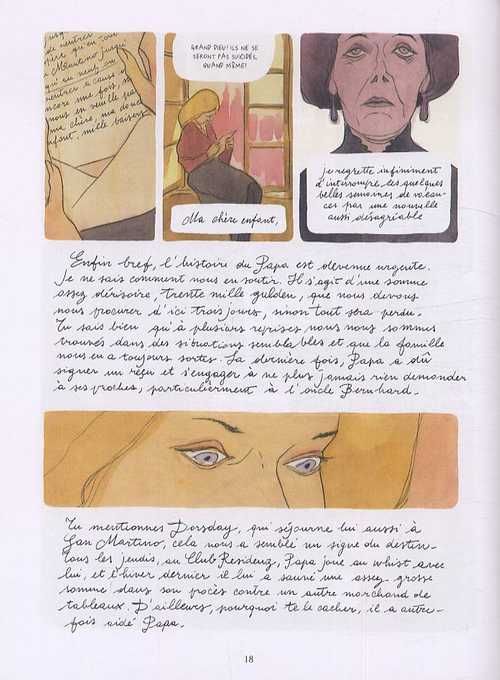 de rentrer
n'Martino jusqu'
qu'on veut en
rentrer à cause d
encore une fois, m
nous en veuille pas
ma chère, ma douce
enfant, mille baisers
GRAND DIEU! ILS NE SE
SERONT PAS SUICIDÉS,
QUAND MÊME!
Ma chère enfant,
je regrette infiniment
d'interrompre ces quelques
belles semaines de vacan-
ces par une nouvelle
aussi désagréable
Enfin bref, l'histoire du Papa est devenue urgente.
Je ne sais comment nous en sortir. Il s'agit d'une somme
assez dérisoire, trente mille gulden, que nous devons
nous procurer d'ici trois jours, sinon tout sera perdu.
Tu sais bien qu'à plusieurs reprises nous nous sommes
trouvés dans des situations semblables et que la famille
nous en a toujours sortis. La dernière fois, Papa a dû
signer un reçu et s'engager à ne plus jamais rien demander
à ses proches, particulièrement à l'oncle Bernhard.
Tu mentionnes Dorsday, qui séjourne lui aussi à
San Martino, cela nous a semblé un signe du destin.
Tous les jeudis, au Club Résidenz, Papa joue au whist avec
lui, et l'hiver dernier il lui a sauvé une assez grosse
somme dans son procès contre un autre marchand de
tableaux. D'ailleurs, pourquoi te le cacher, il a autre-
fois aidé Papa.
18